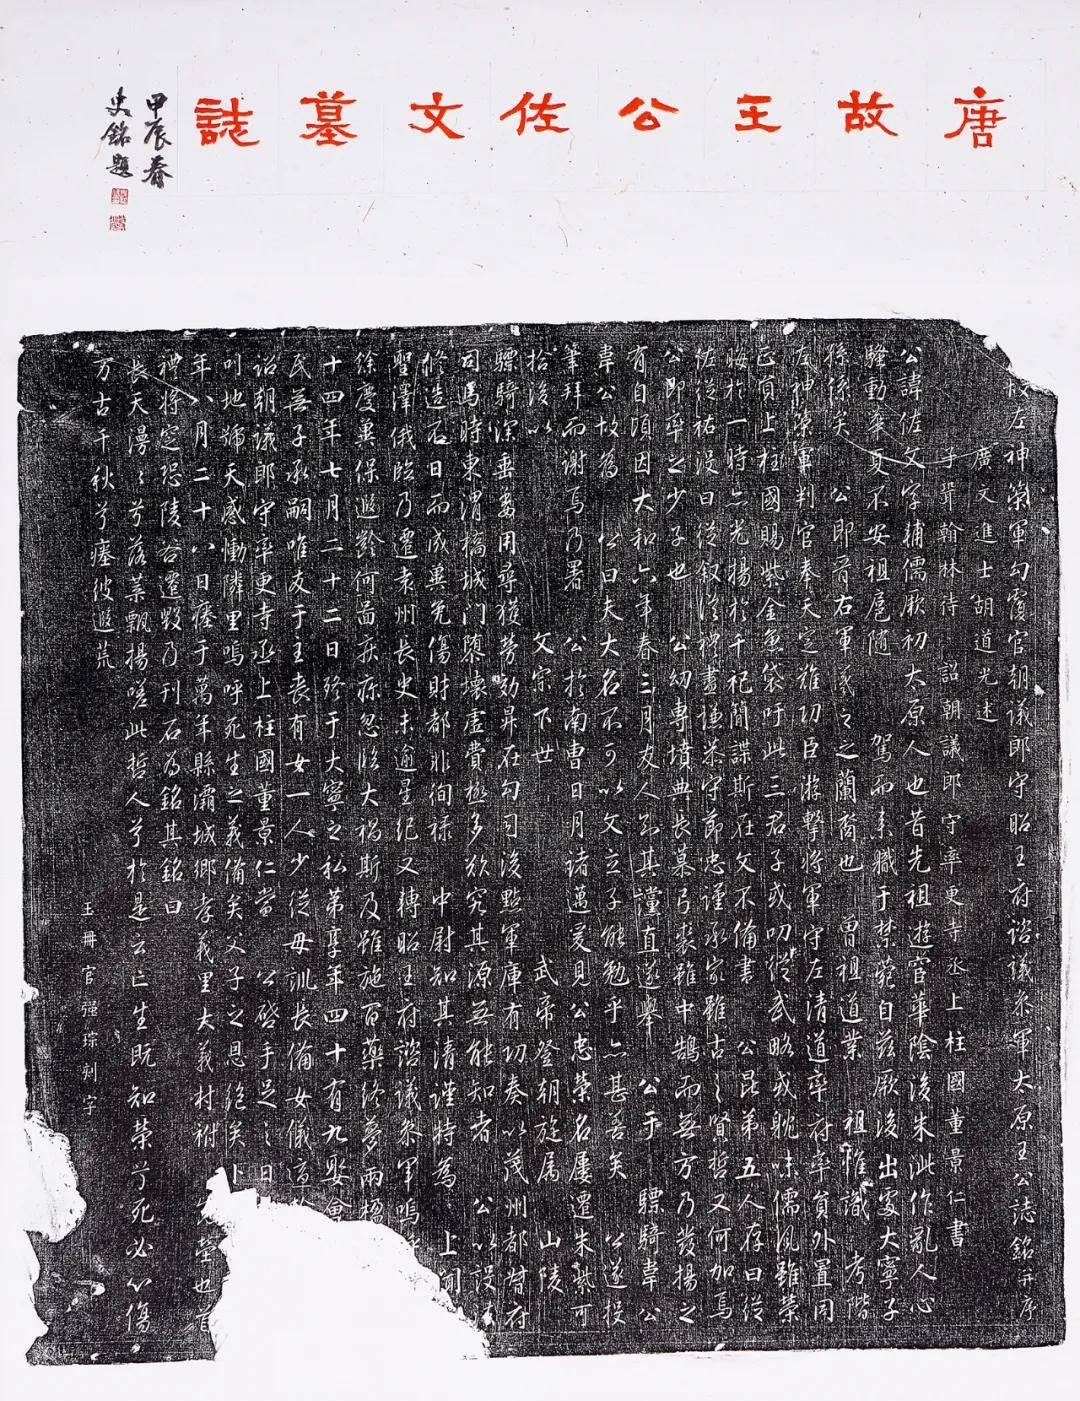 唐故王公佐文墓誌
甲辰春
史銘題
故左神策軍勾覆官朝議郎守昭王府諮議參軍太原王公誌銘并序
廣文進士胡道光述
子壻翰林待詔朝議郎守率更寺丞上柱國董景仁書
公諱佐文字輔儒厥初太原人也昔先祖遊宦華陰後朱泚作亂人心
騷動華夏不安祖扈隨駕而來職于禁苑自茲厥後出處大寧子
孫係矣公即晉右軍羲之之蘭裔也曾祖道業祖惟識考階
左神策軍判官奉天定難功臣游擊將軍守左清道率府率員外置同
正員上柱國賜紫金魚袋吁此三君子或叨從武略或耽味儒風雖榮
晦於一時亦光揚於千祀簡諜斯在文不備書公昆弟五人存曰從
佐從祐沒曰從叙從禮晝謙恭守節忠謹承家雖古之賢哲又何加焉
公即率之少子也公幼專墳典長慕弓裘雖中鵠而無方乃發揚之
有自頃因大和六年春三月友人知其讜直遂舉公于驃騎韋公
韋公故舊公曰夫大名不可以文立子能勉乎亦甚善矣公遂投
筆拜而謝焉乃署公於南曹日月諸邁爰見公忠榮名屢遷朱紫可
拾後以文宗下世武帝登朝旋属山陵
驃騎深垂委用尋獲勞効昇在勾司後點軍庫有功奏以茂州都督府
司馬時東渭橋城門隳壞虛費極多欲究其源無能知者公以設
修造石日而成異免傷財都非徇祿中尉知其清謹特為上聞
聖澤俄臨乃遷袁州長史未逾星紀又轉昭王府諮議參軍嗚呼
餘慶異保遐齡何啚疾瘵忽臨大禍斯及雖施百藥終夢兩楹
十四年七月二十二日終于大寧之私第享年四十有九娶會
民無子承嗣唯友于主喪有女一人少從母訓長備女儀適
詔朝議郎守率更寺丞上柱國董景仁當公啓手足之日
叫地號天感慟隣里嗚呼死生之義備矣父子之恩絕矣卜
年八月二十八日瘞于萬年縣灞城鄉孝義里大義村祔先塋也
禮將定恐陵谷遷毀乃刊石為銘其銘曰
長天漫漫兮落葉飄揚嗟此哲人兮於是云亡生既知榮兮死必心傷
万古千秋兮瘞彼遐荒
玉冊官強琮刻字